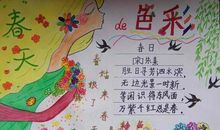 春天
de
色彩
春日
[宋]朱熹
胜日寻芳泗水滨,
无边光景一时新
等闲识得东风面
万紫千红总是春。
春姑娘来了
春